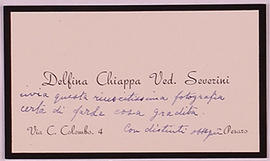 Delfina Chiappa Ved. Severini
invia questa riuscitissima fotografia
certa di farle cosa gradita.
Con distinti ossequi
Via C. Colombo, 4 Pesaro